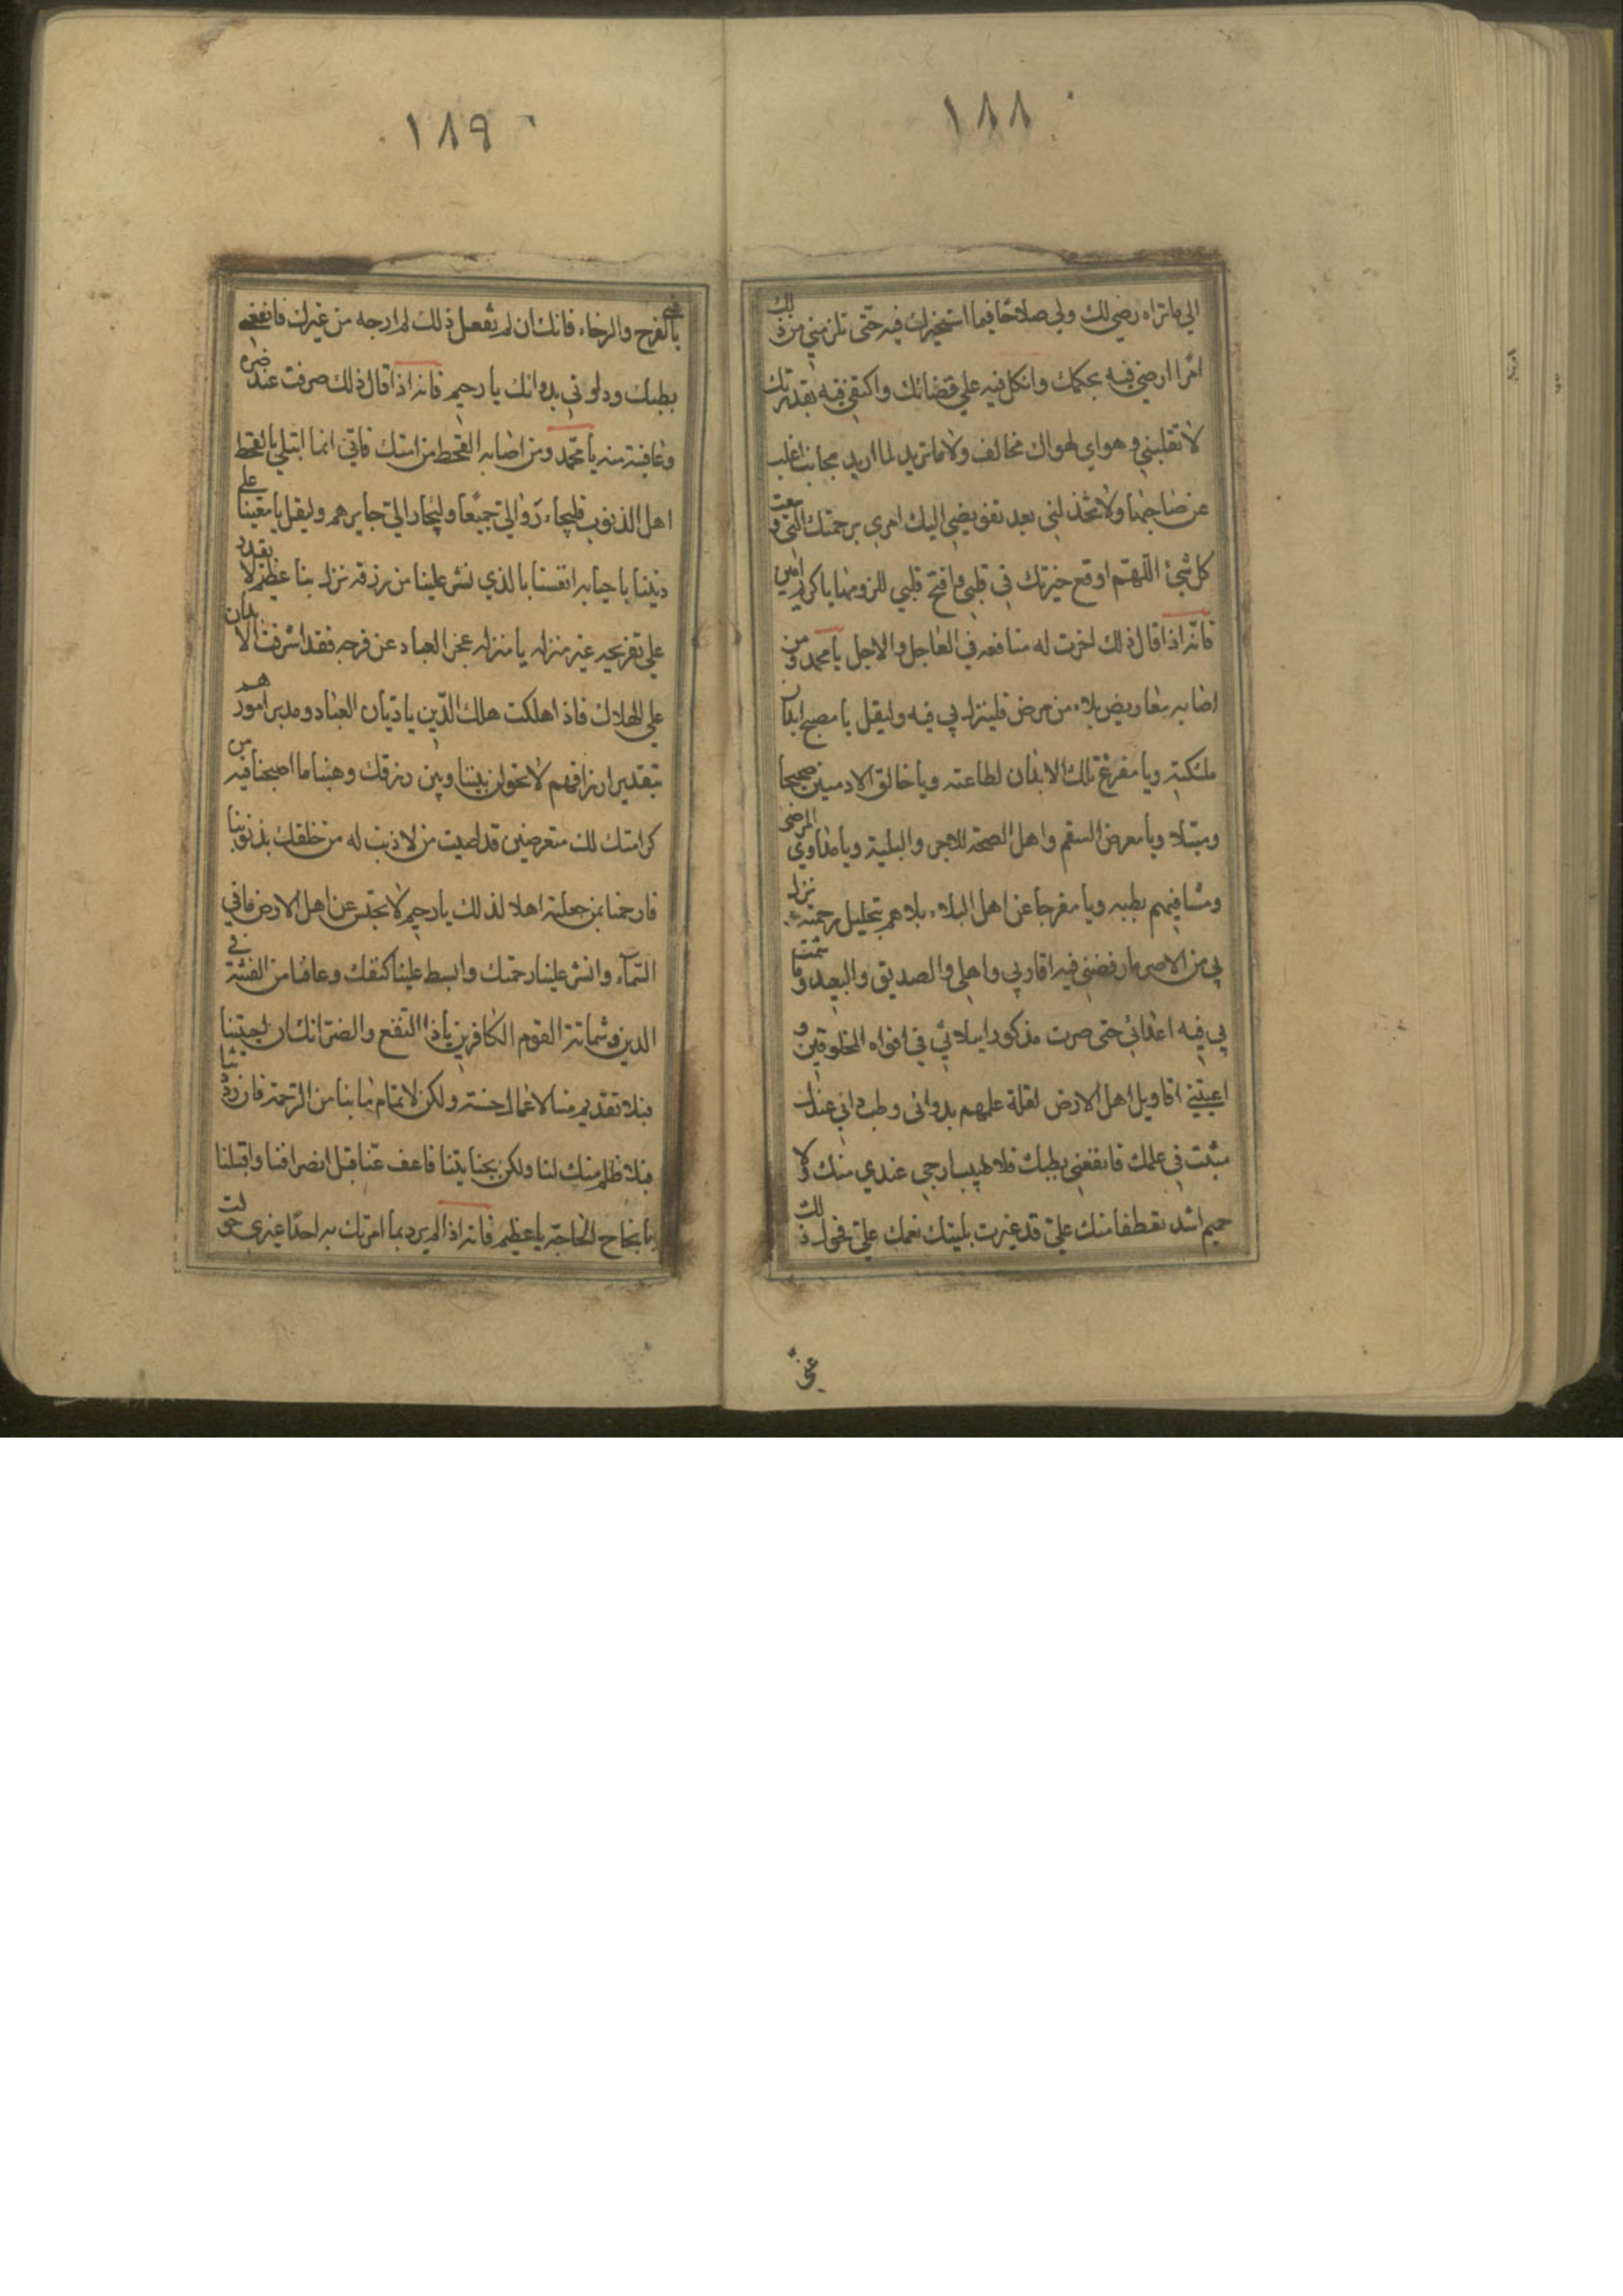 ١٨٨
الي ماتراه رضي لك ولي صلاحًا فيما استخيرك فيه حتّى تلزمني من ذلك
امرًا ارضى فيه بحكمك واتكل فيه علي قضائك واكتفي فيه بقدرتك
لا تقلبني وهواي لهواك مخالف ولا ماتريد لما اريد مجانب اغلب
ولا تخذلني بعد تفويضي اليك امري برحمتك التي وسعت
كل شيئ اللّهمّ اوقع خيرتك في قلبي وافتح قلبي للزومها يا كريم امين
فانه اذا قال ذلك اخرت له منافعه في العاجل والاجل يا محمد ومن
اصابه معاريض بلاء من مرض فلينزل بي فيه وليقل يا مصح ابدان
ملئكته ويا مفرغ تلك الابدان لطاعته ويا خالق الادميين صحيحا
ومبتلا ويا معرض السقم واهل الصحة للاجر والبلية ويا مداوي المرضى
وشافيهم بطبه ويا مفرجا عن اهل البلاء بلاهم بتحليل رحمته نزل
بي من الامر ما رفضني فيه اقاربي واهلي والصديق والبعيد وما شمت
بي فيه اعدائي حتى صرت مذكورا ببلائي في افواه المخلوقين و
اعيتني اقاويل اهل الارض لقلة علمهم بدوائي وطب دائي عندك
مثبت في علمك فانفعني بطبك فلا طبيب ارجى عندي منك ولا
حميم اشد تعطفا منك عليّ قد غيرت بليتك نعمك عليّ فحول ذلك
عنّي
١٨٩
بالفرج والرخاء فانك ان لم تفعل ذلك لم ارجه من غيرك فانفعني
بطبك وداوني بدوائك يا رحيم فانه اذا قال ذلك صرفت عنه ضره
وعافيته منه يا محمّد ومن اصابه القحط من امتك فاني انما ابتلي بالقحط
اهل الذنوب فليجأروا اليّ جميعًا وليجأر اليّ جايرهم وليقل يا معيننا على
ديننا باحيايه انفسنا بالذي نشر علينا من رزقه نزل بنا عظيم لا يقدر
علي تفريجه غير منزله يا منزله عجز العباد عن فرجه فقد اشرفت الابدان
علي الهلاك فاذا هلكت هلك الدّين يا ديّان العباد ومدبر امورهم
بتقدير ارزاقهم لا تحولن بيننا وبين رزقك وهنئنا ما اصبحنا فيه من
كرامتك لك متعرضين قد اصيب من لا ذنب له من خلقك بذنوبنا
فارحمنا بمن جعلته اهلا لذلك يا رحيم لا تحبس عن اهل الارض ما في
السّماء وانشر علينا رحمتك وابسط علينا كنفك وعافنا من الفتنة في
الدين وشماتة القوم الكافرين يا ذا النفع والضر انك ان اجبتنا
فبلا تقديم منا لاعمال حسنة ولكن لاتمام ما بنا من الرحمة فان رددتنا
فبلا ظلم منك لنا ولكن بجنايتنا فاعف عنّا قبل انصرافنا واقبلنا
بانجاح الحاجة يا عظيم فانه اذا لم يرد بما امرتك به احدًا غيري حولت